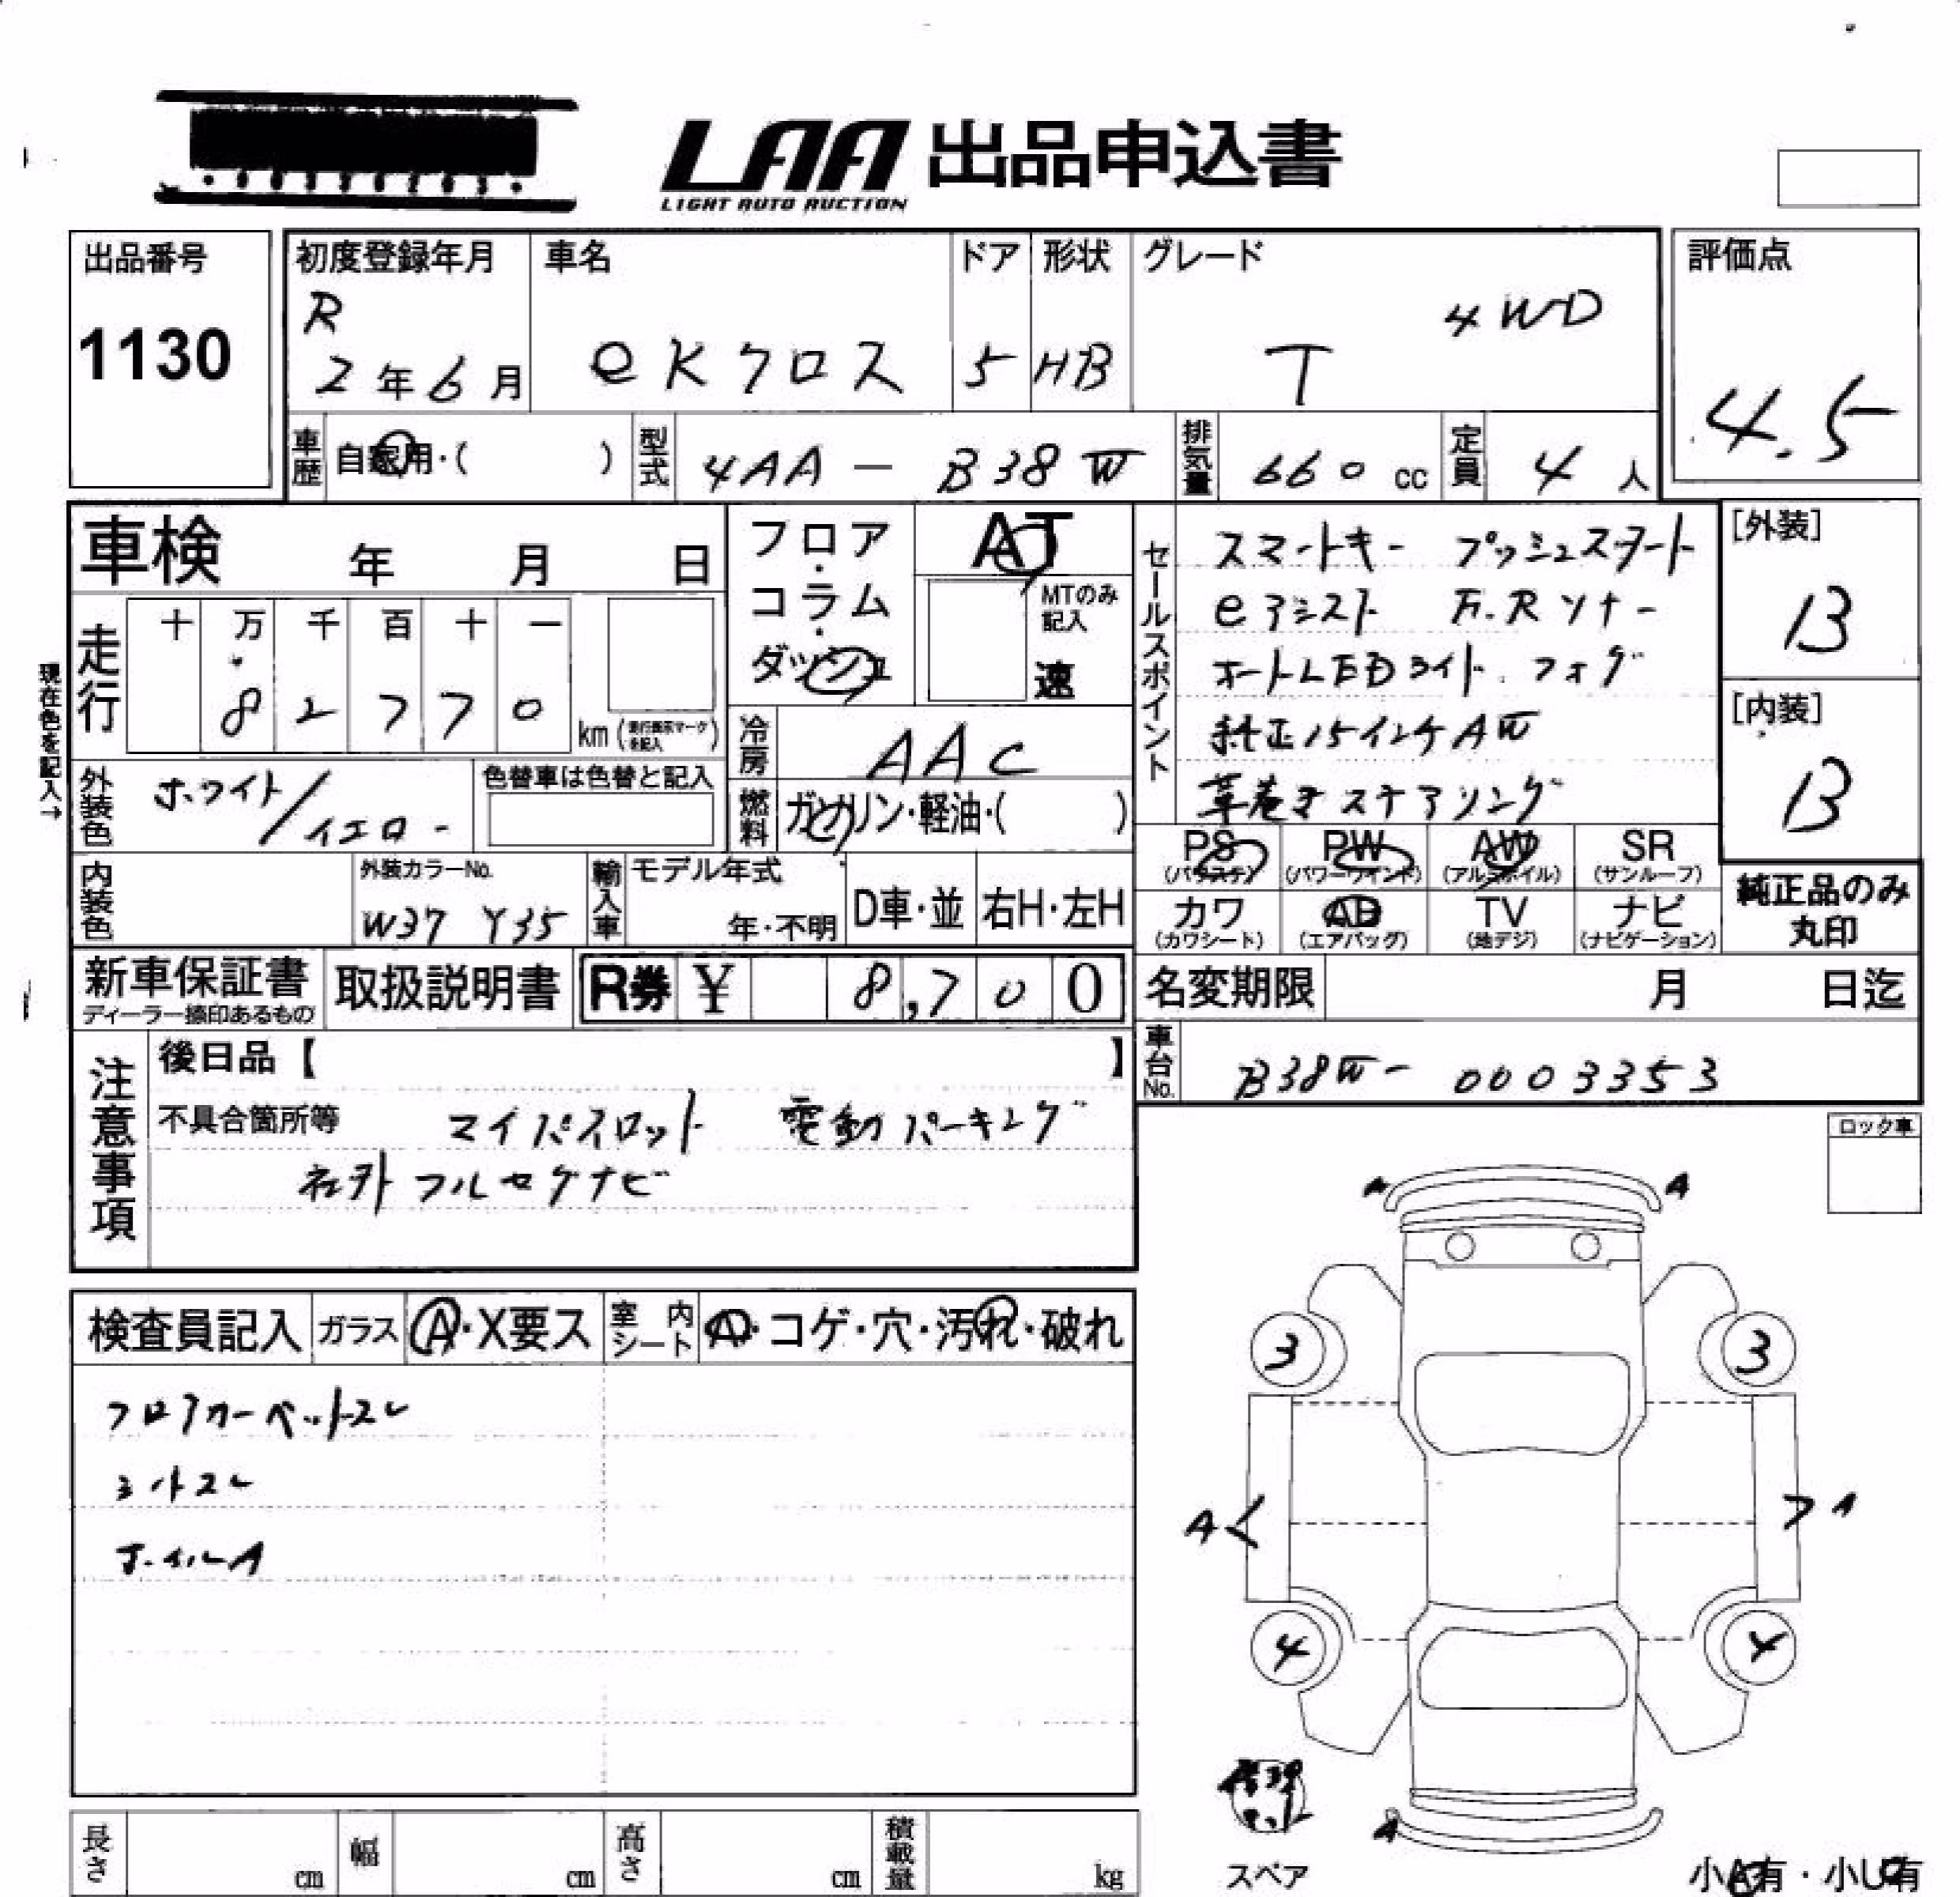 LAA 出品申込書
LIGHT AUTO AUCTION
出品番号
1130
初度登録年月
R
2年6月
車名
eKクロス
ドア
5
形状
HB
グレード
T 4WD
評価点
4.5
車歴
自家用・( )
型式
4AA - B38W
排気量
660 cc
定員
4 人
車検 年 月 日
フロア・コラム・ダッシュ
AT
MTのみ記入
速
走行
十 万 千 百 十 一
8 2 7 7 0
km (走行表示マークを記入)
現在色を記入→
外装色
ホワイト/イエロー
色替車は色替と記入
冷房
AAC
燃料
ガソリン・軽油・( )
内装色
外装カラーNo.
W37 Y35
輸入車
モデル年式
年・不明
D車・並
右H・左H
セールスポイント
スマートキー プッシュスタート
eアシスト F.Rソナー
オートLEDライト.フォグ
純正15インチAW
革巻きステアリング
[外装]
B
[内装]
B
PS
(パワステ)
PW
(パワーウインド)
AW
(アルミホイル)
SR
(サンルーフ)
カワ
(カワシート)
AB
(エアバッグ)
TV
(地デジ)
ナビ
(ナビゲーション)
純正品のみ
丸印
新車保証書
ディーラー捺印あるもの
取扱説明書
R券 ¥ 8,700
名変期限 月 日迄
車台No.
B38W- 0003353
注意事項
後日品【 】
不具合箇所等 マイパイロット 電動パーキング
社外フルセグナビ
ロック車
検査員記入
ガラス
A・X要ス
室内シート
A・コゲ・穴・汚れ・破れ
フロアカーペットスレ
シートスレ
ホイールA
A A
3 3
A A
4 4
A
スペア
小A有・小U有
長さ cm
幅 cm
高さ cm
積載量 kg